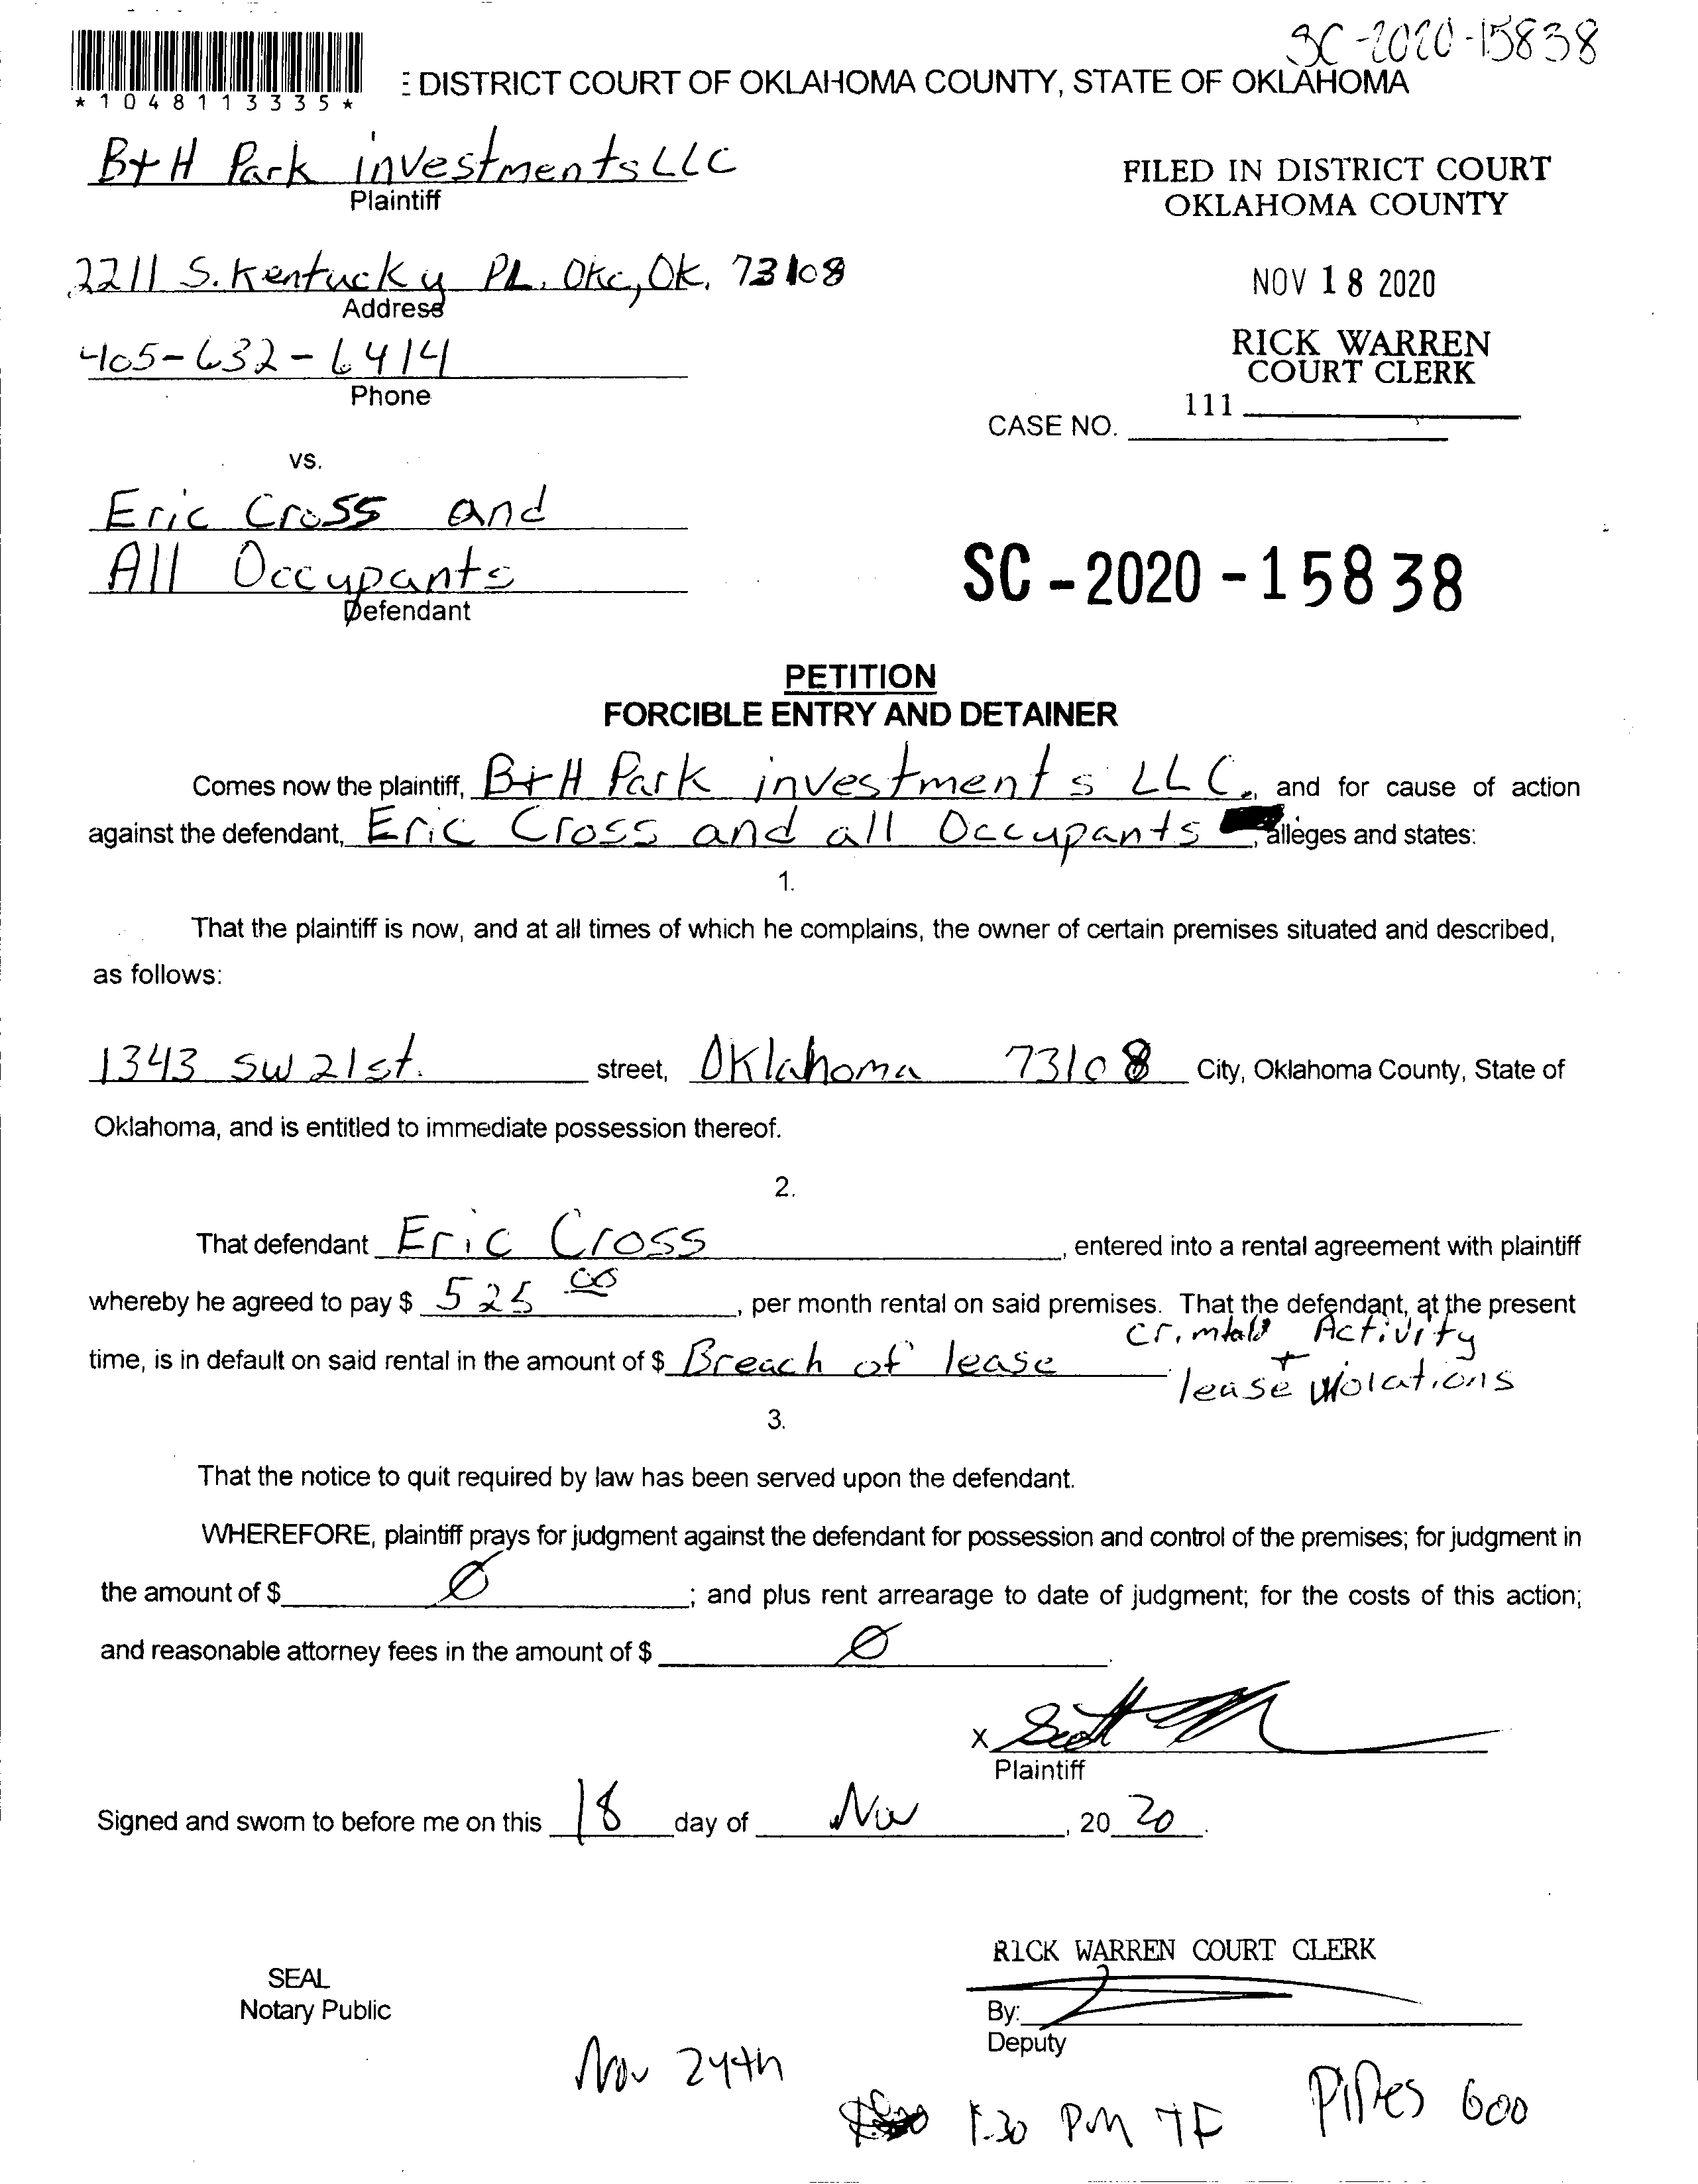 SC-2020-15838
*1048113335*
E DISTRICT COURT OF OKLAHOMA COUNTY, STATE OF OKLAHOMA
B+H Park investments LLC
Plaintiff
FILED IN DISTRICT COURT
OKLAHOMA COUNTY
2211 S. Kentucky PL. Okc, OK. 73108
Address
NOV 18 2020
405-632-6414
Phone
RICK WARREN
COURT CLERK
111
CASE NO.
vs.
Eric Cross and
All Occupants
Defendant
SC-2020-15838
PETITION
FORCIBLE ENTRY AND DETAINER
Comes now the plaintiff, B+H Park investments LLC., and for cause of action
against the defendant, Eric Cross and all Occupants, alleges and states:
1.
That the plaintiff is now, and at all times of which he complains, the owner of certain premises situated and described,
as follows:
1343 SW 21st. street, Oklahoma 73108 City, Oklahoma County, State of
Oklahoma, and is entitled to immediate possession thereof.
2.
That defendant Eric Cross, entered into a rental agreement with plaintiff
whereby he agreed to pay $ 525 00, per month rental on said premises. That the defendant, at the present
Activity
time, is in default on said rental in the amount of $ Breach of lease
+
lease violations
3.
That the notice to quit required by law has been served upon the defendant.
WHEREFORE, plaintiff prays for judgment against the defendant for possession and control of the premises; for judgment in
the amount of $ Ø; and plus rent arrearage to date of judgment; for the costs of this action;
and reasonable attorney fees in the amount of $ Ø.
X Scott
Plaintiff
Signed and sworn to before me on this 18 day of Nov, 20 20.
RICK WARREN COURT CLERK
SEAL
Notary Public
By:
Deputy
Nov 24th
1:30 PM Pipes 600